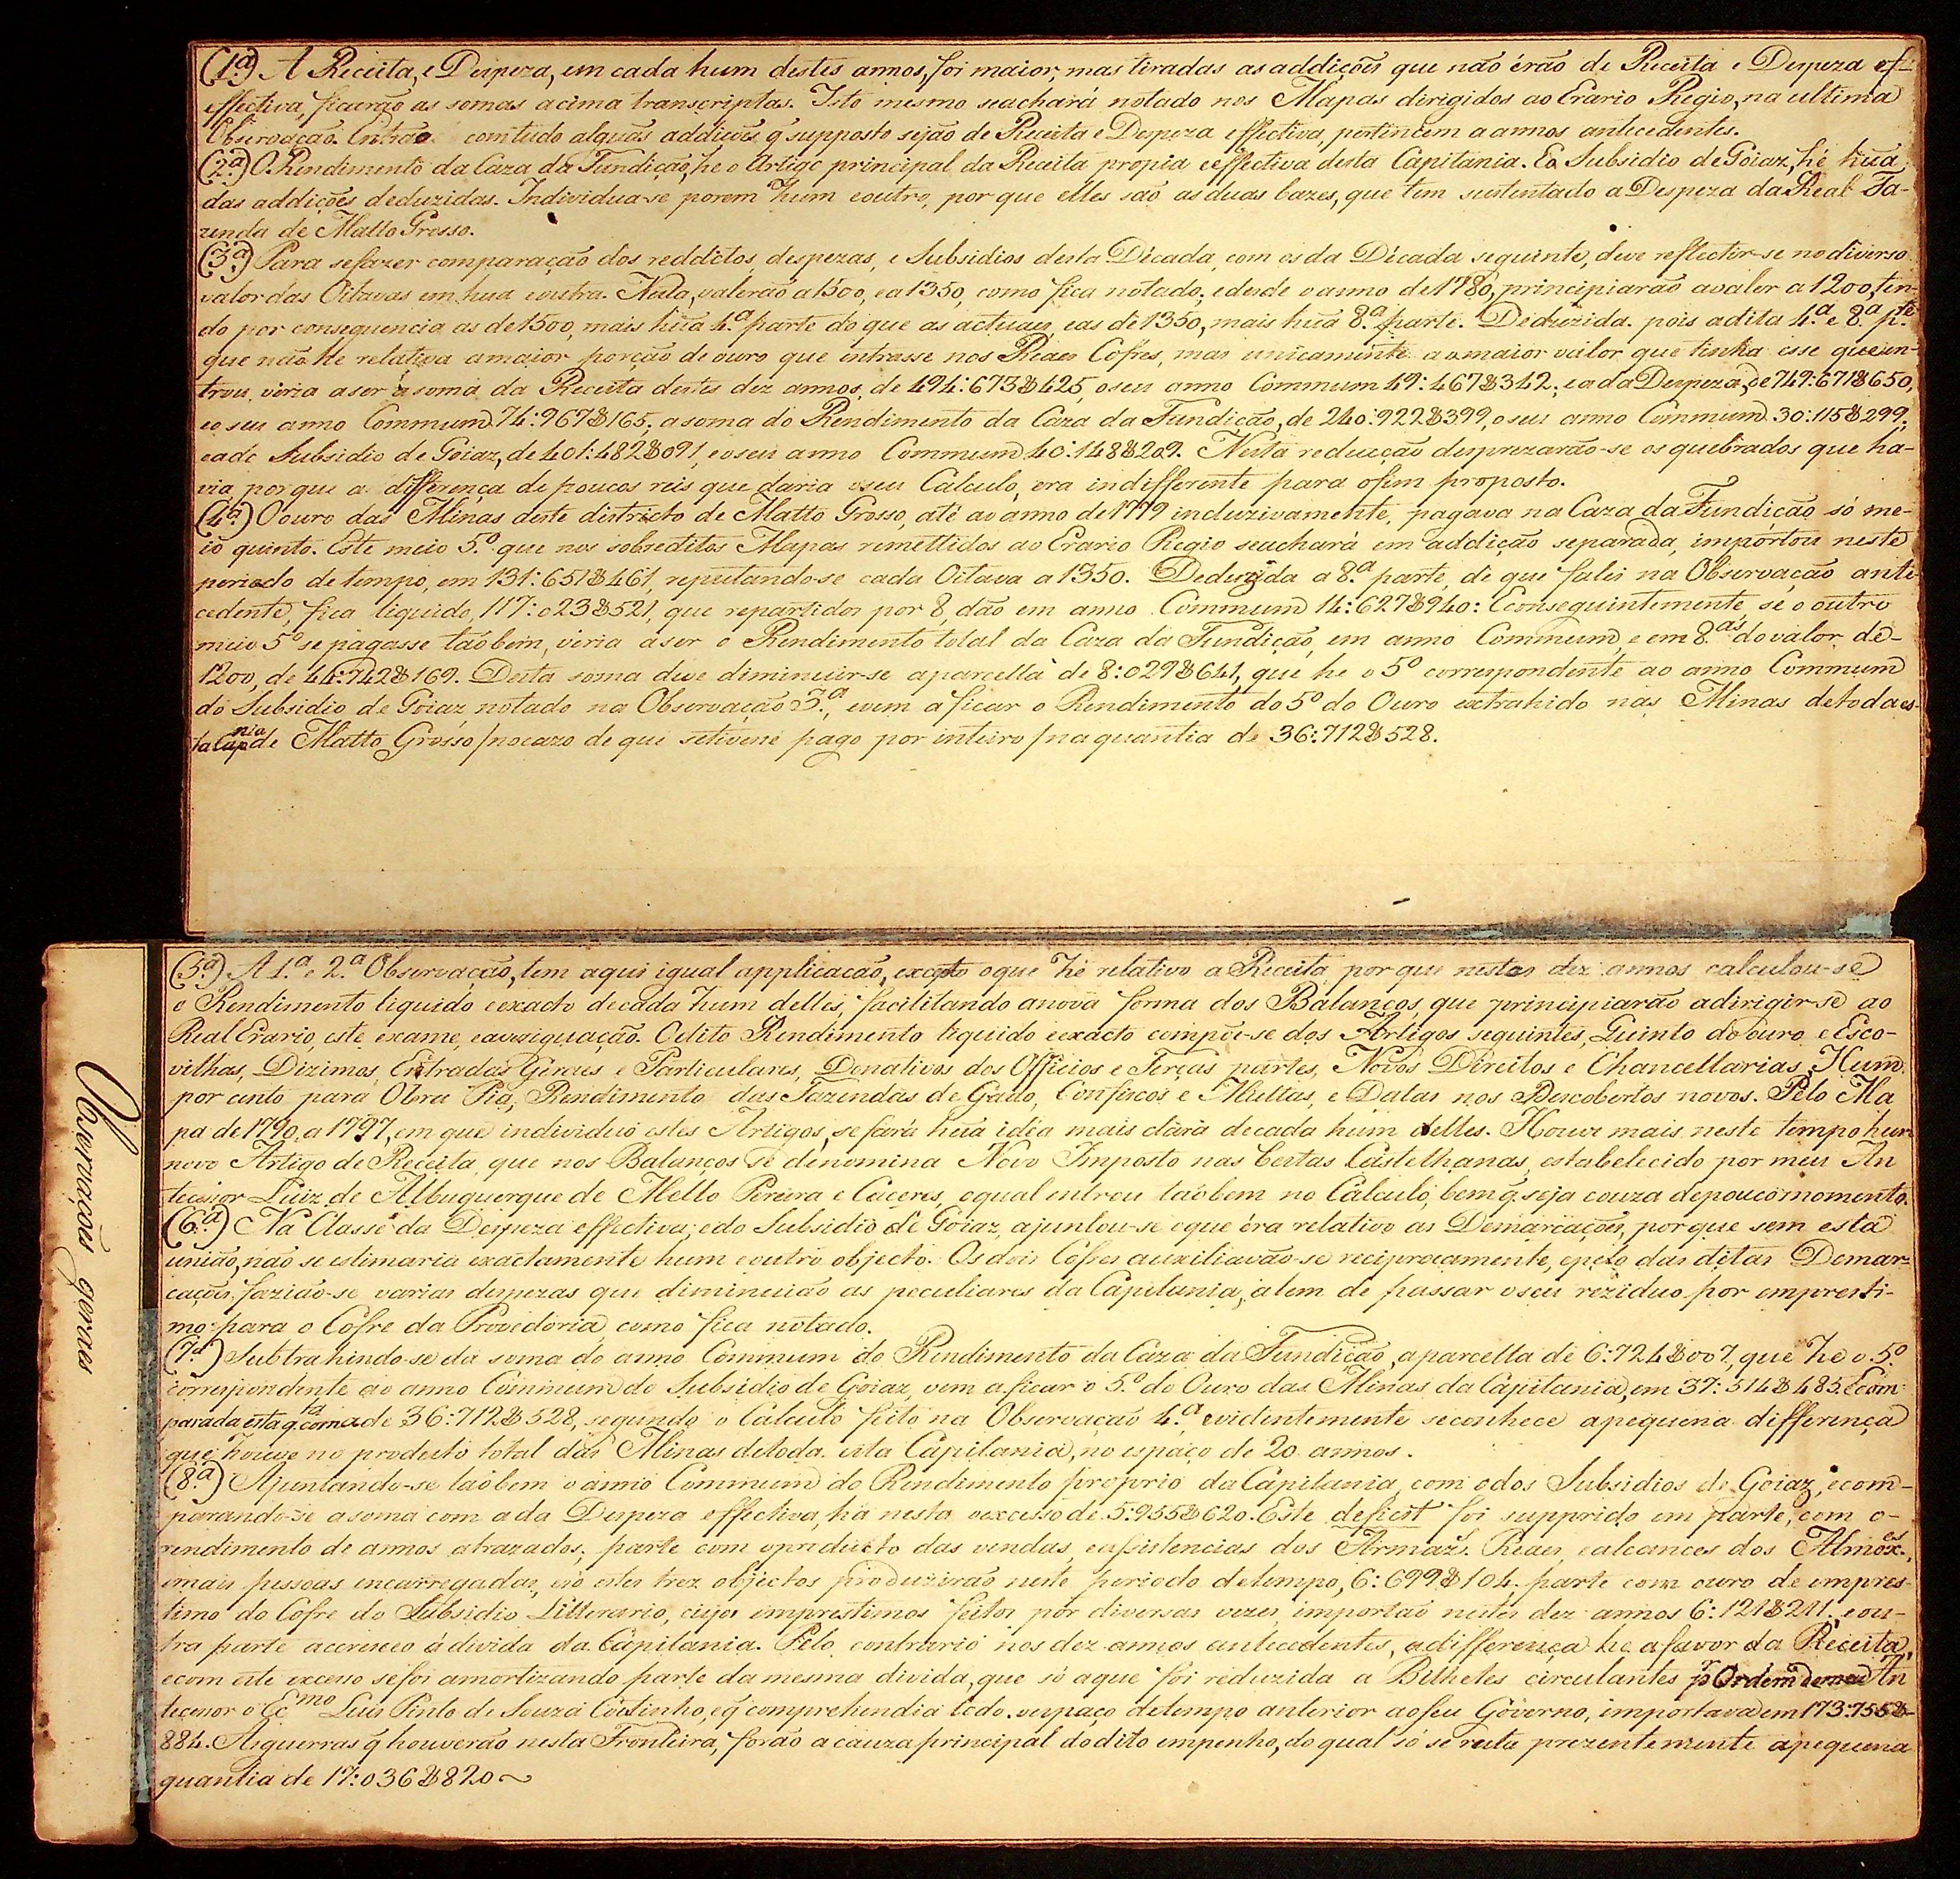 (1.ª) A Receita, e Despeza, em cada hum destes annos, foi maior, mas tiradas as addições que não érão de Receita e Despeza ef-
effectiva, ficarão as somas acima transcriptas. Isto mesmo seachará notado nos Mapas dirigidos ao Erario Regio, na ultima
Observação. Entrão comtudo alguãs addicões q̃ supposto sejão de Receita e Despeza effectiva, pertencem a annos antecedentes.
(2.ª) O Rendimento da Caza da Fundição, he o Artigo principal da Receita propia e effectiva desta Capitania. E o Subsidio de Goiaz, hé hũa
das addições deduzidas. Individua-se porem hum eoutro, por que elles são as duas bazes, que tem sustentado a Despeza da Real Fa-
zenda de Matto Grosso.
(3.ª) Para sefazer comparação dos redditos, despezas, e Subsidios desta Década, com os da Década seguinte, deve reflectir-se no diverso
valor das Oitavas em hũa eoutra. Nesta, valerão a 1500, e a 1350, como fica notado; e desde o anno de 1780, principiarão avaler a 1200, ten-
do por consequencia as de 1500, mais hũa 4.ª parte do que as actuaes, eas de 1350, mais hũa 8.ª parte. Deduzida pois adita 4.ª e 8.ª p.te
que não he relativa amaior porção de ouro que entrasse nos Reaes Cofres, mas unicamente ao maior valor que tinha esse que en-
trou, viria aser a soma da Receita destes dez annos, de 494:673$425, oseu anno Commum 49:467$342; e a da Despeza, de 749:671$650,
eo seu anno Commum 74:967$165; a soma do Rendimento da Caza da Fundição, de 240:922$399, o seu anno Commum 30:115$299;
eado Subsidio de Goiaz, de 401:482$091, eoseu anno Commum 40:148$209. Nesta reducção desprezarão-se os quebrados que ha-
via, por que a differença de poucos réis que daria oseu Calculo, era indifferente para ofim proposto.
(4.ª) O ouro das Minas deste districto de Matto Grosso, até ao anno de 1779 incluzivamente, pagava na Caza da Fundição só me-
io quinto. Este meio 5.º que nos sobreditos Mapas remettidos ao Erario Regio seachará em addição separada, importou neste
periodo de tempo, em 131:651$461, reputando-se cada Oitava a 1350. Deduzida a 8.ª parte, de que falei na Observação ante-
cedente, fica liquido, 117:023$521, que repartidos por 8, dão em anno Commum 14:627$940: Econseguintemente se o outro
meio 5º se pagasse taõbem, viria aser o Rendimento total da Caza da Fundição, em anno Commum, e em 8.as do valor de-
1200, de 44:742$169. Desta soma deve diminuir-se aparcella de 8:029$641, que he o 5º correspondente ao anno Commum
do Subsidio de Goiaz notado na Observação 3.ª, evem a ficar o Rendimento do 5º do Ouro extrahido nas Minas detoda es-
ta Cap.nia de Matto Grosso /nocazo de que setivesse pago por inteiro/ na quantia de 36:712$528.
Observaçoẽs geraes
(5.ª) A 1.ª e 2.ª Observação, tem aqui igual applicacão, excepto oque hé relativo a Receita, por que nestes dez annos calculou-se
o Rendimento liquido eexacto decada hum delles, facilitando anova forma dos Balanços, que principiarão adirigir-se ao
Real Erario, este exame, eaveriguação. Odito Rendimento liquido eexacto compõe-se dos Artigos seguintes, Quinto do ouro, e Esco-
vilhas, Dizimos, Entradas Geraes e Particulares, Donativos dos Officios e Terças partes, Novos Direitos e Chancellarias, Hum
por cento para Obra Pia, Rendimento das Fazendas de Gado, Confiscos e Multas, e Datas nos Descobertos novos. Pelo Ma
pa de 1790, a 1797, em que individuo estes Artigos, se fará hũa idéa mais clara decada hum delles. Houve mais neste tempo hum
novo Artigo de Receita, que nos Balanços se denomina Novo Imposto nas Bestas Castelhanas, estabelecido por meu An
tecessor Luiz de Albuquerque de Mello Pereira e Caceres, oqual entrou taõbem no Calculo, bem q̃ seja couza depoucomomento.
(6.ª) Na Classe da Despeza effectiva, edo Subsidio de Goiaz, ajuntou-se oque éra relativo as Demarcaçoẽs, por que sem esta
união, não se estimaria exactamente hum eoutro objecto. Os dois Cofres auxiliavão-se reciprocamente, epelo das ditas Demar-
caçoẽs fazião-se varias despezas que diminuião as peculiares da Capitania, alem de passar oseu reziduo por empresti-
mo para o Cofre da Provedoria, como fica notado.
(7.ª) Subtrahindo-se da soma do anno Commum do Rendimento da Caza da Fundição, aparcella de 6:724$007, que he o 5.º
correspondente ao anno Commum do Subsidio de Goiaz, vem a ficar o 5.º do Ouro das Minas da Capitania, em 37:514$485. Ecom-
parada esta q.ta com a de 36:712$528, segundo o Calculo feito na Observação 4.ª evidentemente seconhece apequena differença
que houve no producto total das Minas detoda esta Capitania, no espaço de 20 annos.
(8.ª) Ajuntando-se taõbem oanno Commum do Rendimento proprio da Capitania, com odos Subsidios de Goiaz, ecom-
parando-se asoma com ada Despeza effectiva, há nesta oexcesso de 5:955$620. Este deficit foi supprido em parte, com o-
rendimento de annos atrazados; parte com oproducto das vendas, eassistencias dos Armaz.s Reaes, ealcances dos Almox.es,
emais pessoas encarregadas, eió estes trez objectos produzirão neste periodo detempo, 6:699$104. parte com ouro de empres-
timo do Cofre do Subsidio Litterario, cujos imprestimos feitos por diversas vezes, importão nestes dez annos 6:121$211; eou-
tra parte accresceo á divida da Capitania. Pelo contrario nos dez annos antecedentes, adifferença he afavor da Receita,
ecom este excesso sefoi amortizando parte da mesma divida, que só aque foi reduzida a Bilhetes circulantes p.r Ordem demeu An
tecessor o Ex.mo Luis Pinto de Souza Coutinho, eq̃ comprehendia todo oespaço detempo anterior aoseu Governo, importava em 173:755$
884. As guerras q̃ houverão nesta Fronteira, forão a cauza principal dodito empenho, do qual só se resta prezentemente apequena
quantia de 17:036$820